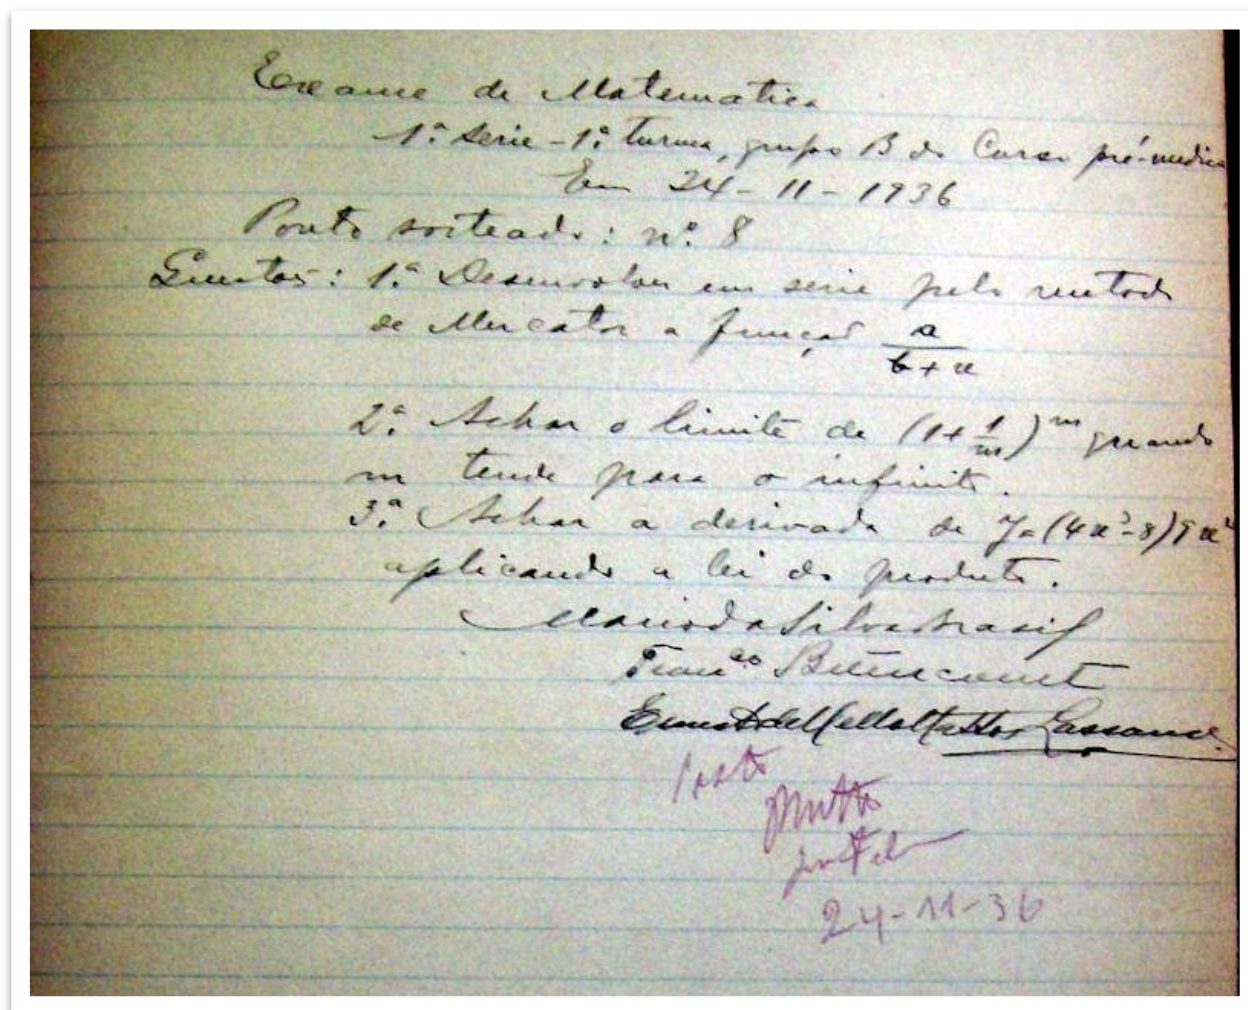 Exame de Matematica
1ª serie - 1ª turma, grupo B do Curso pré-medico
Em 24 - 11 - 1936
Ponto sorteado: nº 8
1ª Desenvolver em serie pelo metodo
de Mercator a função a/(b+x)
2ª Achar o limite de (1+1/m)^m quando
m tende para o infinito.
3ª Achar a derivada de y=(4x³-8)
aplicando a lei do producto.
Mario da Silva Brasil
Franco Bittencourt
Lassance
24-11-36